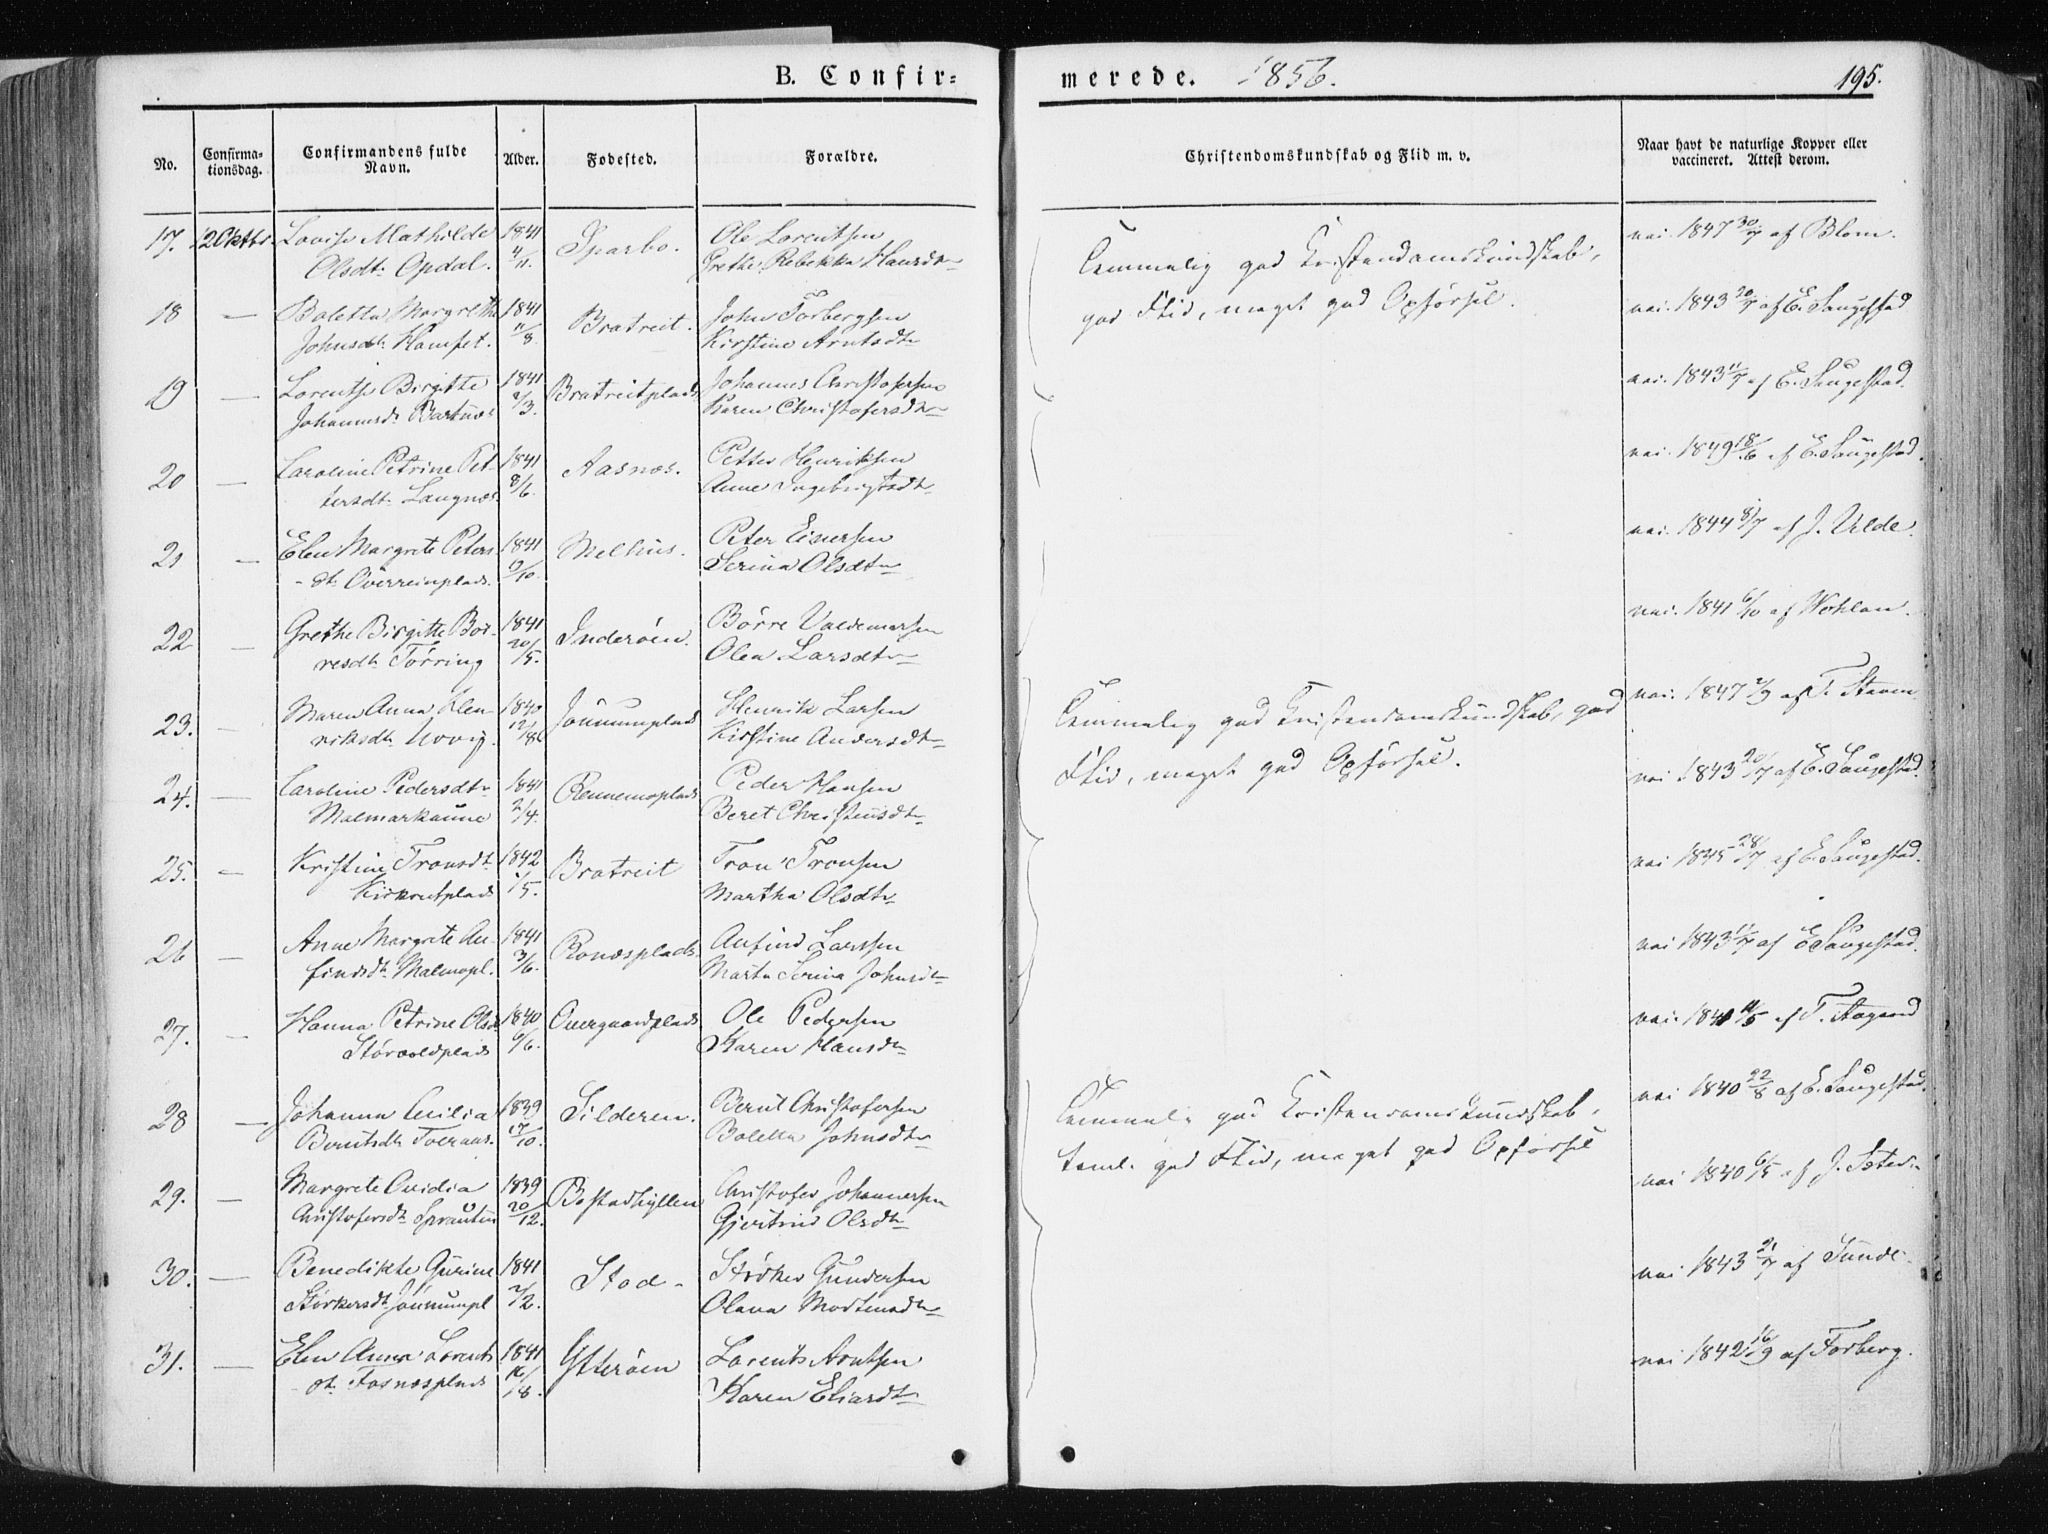 B. Confir=
merede. 1856.
195.
No.
Confirma-
tionsdag.
Confirmandens fulde
Navn.
Alder.
Fødested.
Forældre.
Christendomskundskab og Flid m. v.
Naar havt de naturlige Kopper eller
vaccineret. Attest derom.
17. 12 Oktbr. Lovise Mathilde 1841 Sparbo. Ole Lorentsen
Olsdt. Opdal. 4/11. Grethe Rebekka Hansdtr
Temmelig god Kristendomskundskab,
god Flid, meget god Opførsel.
vac. 1847 30/7 af Blom.
18 — Boletta Margrethe 1841 Bratreit. John Torbergsen
Johnsdt. Hamset. 11/8. Kirstine Arntsdtr
vac. 1843 20/7 af E. Saugestad
19 — Lorentse Birgitte 1841 Bratreitplads Johannes Christofersen
Johannesdt. Bartnæs 2/3. Karen Christofersdtr
vac. 1843 11/7 af E. Saugestad.
20 — Caroline Petrine Pet- 1841 Aasnæs. Petter Henriksen
tersdt. Langnæs. 8/6. Anne Ingebrigtsdtr
vac. 1849 18/6 af E. Saugestad.
21 — Elen Margrete Peters 1841 Melhus. Peter Einersen
dt. Overreinplads. 13/10. Serina Olsdtr
vac. 1844 8/7 af J. Velde.
22 — Grethe Birgitte Bør- 1841 Inderøen. Børre Valdemarsen
resdt. Tørring 20/5. Olea Larsdtr
vac. 1841 6/10 af Wohlan.
23. — Maren Anna Hen- 1840 Jønnumplads Henrik Larsen
riksdt. 12/8. Kirstine Andersdtr
Temmelig god Kristendomskundskab, god
Flid, meget god Opførsel.
vac. 1847 2/9 af T. Staven
24. — Caroline Pedersdtr 1841 Rennemsplads Peder Hansen
Malmarkaune 2/4. Beret Christensdtr
vac 1843 20/7 af E. Saugestad.
25. — Kristine Tronsdt. 1842 Bratreit Tron Tronsen
Kirkreitplads 1/5. Martha Olsdtr
vac 1845 28/7 af E. Saugestad.
26 — Anne Margrete An- 1841 Ronæsplads. Anfind Larssen
findsdt. Malmopl. 3/6. Marta Serina Johnsdtr
vac 1843 11/7 af E Saugestad.
27. — Hanna Petrine Olsdt 1840 Overgaardplads. Ole Pedersen
6/6. Karen Hansdtr
vac. 1841 af T. Aagaard
28 — Johanna Cecilia 1839 Silderen. Bernt Christofersen
Berntsdt. Tveraas. 17/10. Boletta Johnsdtr
Temmelig god Kristendomskundskab,
teml. god Flid, meget god Opførsel
vac 1840 22/8 af E. Saugestad.
29. — Margrete Ovidia 1839 Bostadhyllen Christofer Johannessen
Christofersdt. 20/12. Gjertrud Olsdtr
vac 1840 6/5 af J.
30. — Benedikte Gurine 1841 Stod — Størker Gundersen
Størkersdt. Jønnumpl 7/2. Olava Mortensdtr
vac. 1843 21/7 af Sunde.
31. — Elen Anna Lorents 1841 Ytterøen Lorents Arntsen
dt. Fosnæsplads 16/8. Karen Eliasdtr
vac 1842 16/9 af Forberg.